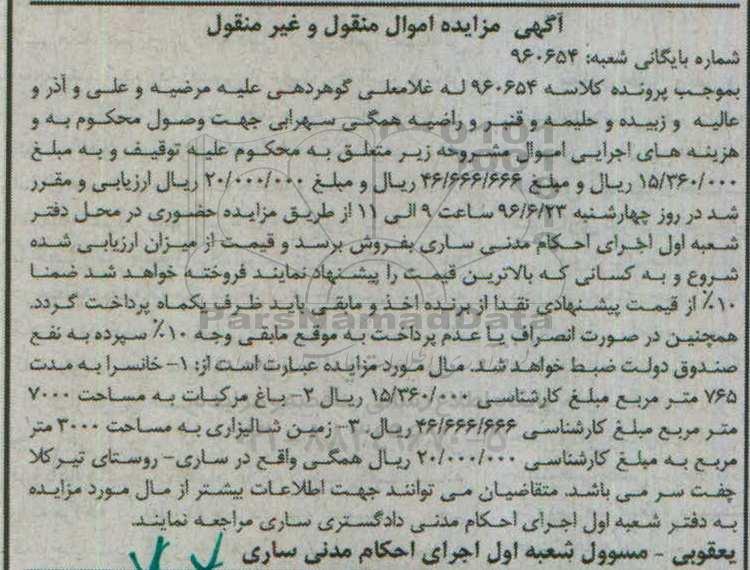 آگهی مزایده اموال منقول و غیر منقول
شماره بایگانی شعبه: ۹۶۰۶۵۴
بموجب پرونده کلاسه ۹۶۰۶۵۴ له غلامعلی گوهردهی علیه مرضیه و علی و آذر و
عالیه و زبیده و حلیمه و قنبر و راضیه همگی سهرابی جهت وصول محکوم به و
هزینه های اجرایی اموال مشروحه زیر متعلق به محکوم علیه توقیف و به مبلغ
۱۵/۳۶۰/۰۰۰ ریال و مبلغ ۴۶/۶۶۶/۶۶۶ ریال و مبلغ ۲۰/۰۰۰/۰۰۰ ریال ارزیابی و مقرر
شد در روز چهارشنبه ۹۶/۶/۲۳ ساعت ۹ الی ۱۱ از طریق مزایده حضوری در محل دفتر
شعبه اول اجرای احکام مدنی ساری بفروش برسد و قیمت از میزان ارزیابی شده
شروع و به کسانی که بالاترین قیمت را پیشنهاد نمایند فروخته خواهد شد ضمنا
۱۰٪ از قیمت پیشنهادی نقدا از برنده اخذ و مابقی باید ظرف یکماه پرداخت گردد.
ParsNamadData
همچنین در صورت انصراف یا عدم پرداخت به موقع مابقی وجه ۱۰٪ سپرده به نفع
صندوق دولت ضبط خواهد شد. مال مورد مزایده عبارت است از: ۱- خانسرا به مدت
۷۶۵ متر مربع مبلغ کارشناسی ۱۵/۳۶۰/۰۰۰ ریال ۲- باغ مرکبات به مساحت ۷۰۰۰
متر مربع مبلغ کارشناسی ۴۶/۶۶۶/۶۶۶ ریال ۳- زمین شالیزاری به مساحت ۳۰۰۰ متر
مربع به مبلغ کارشناسی ۲۰/۰۰۰/۰۰۰ ریال همگی واقع در ساری- روستای تیرکلا
چفت سر می باشد. متقاضیان می توانند جهت اطلاعات بیشتر از مال مورد مزایده
به دفتر شعبه اول اجرای احکام مدنی دادگستری ساری مراجعه نمایند.
یعقوبی - مسوول شعبه اول اجرای احکام مدنی ساری